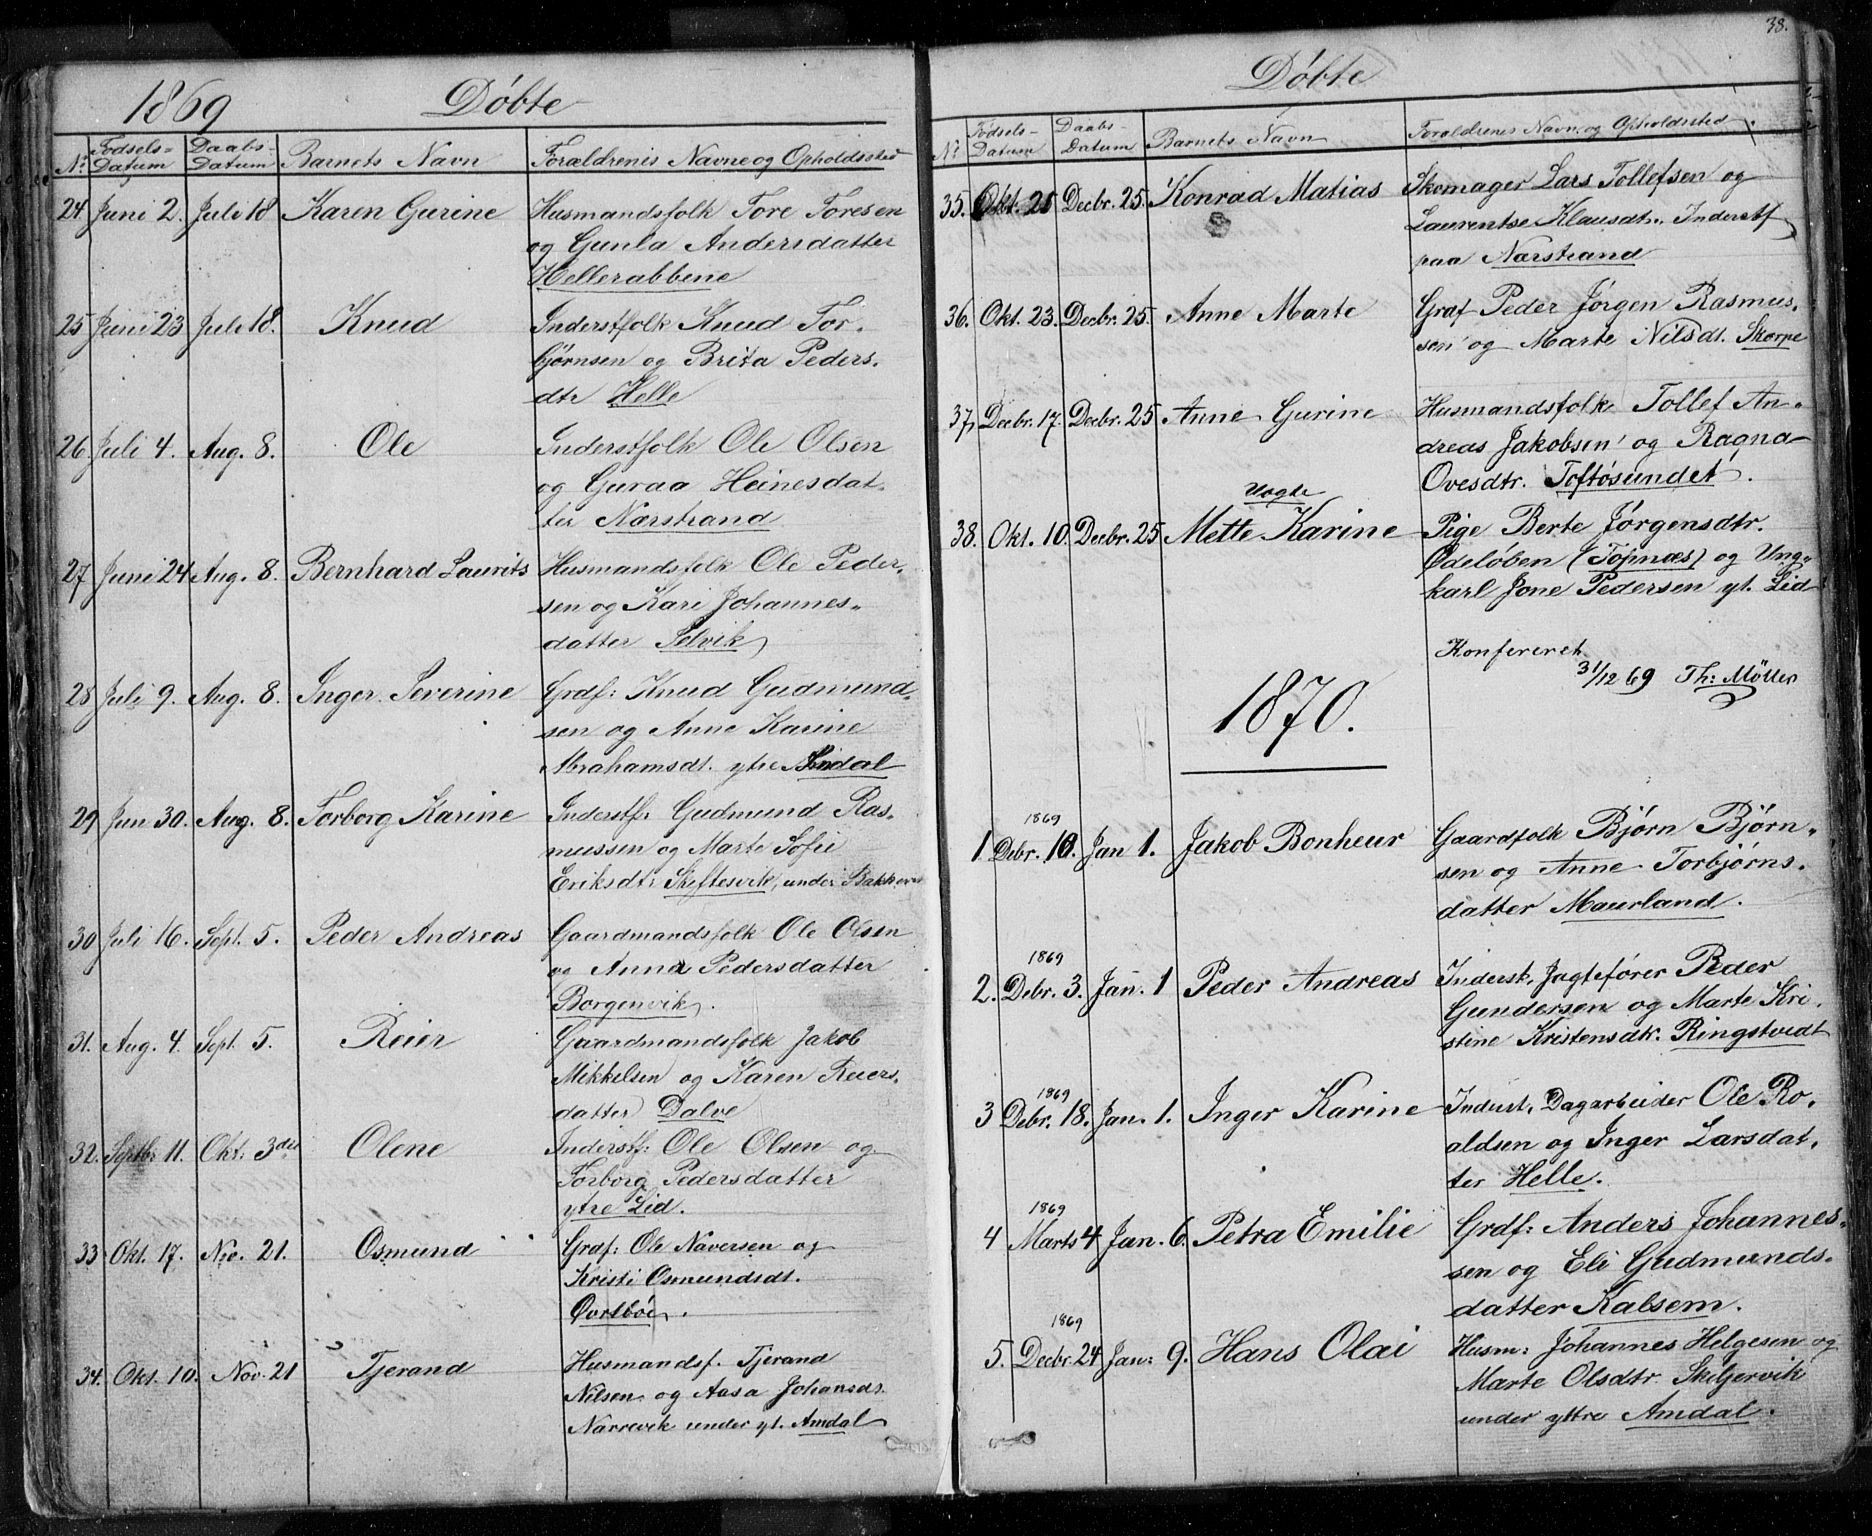 1869 Døbte
No Fødsels-Datum Daabs-Datum Barnets Navn Forældrenes Navne og Opholdssted
24. Juni 2. Juli 18 Karen Gurine Husmandsfolk Tore Toresen
og Gunla Andersdatter
Hellerabbene
25 Juni 23 Juli 18. Knud Inderstfolk Knud Tor-
bjørnsen og Brita Peders-
dtr Helle
26 Juli 4. Aug. 8. Ole Inderstfolk Ole Olsen
og Guraa Heinesdat-
ter Nærstrand
27 Juni 24 Aug. 8. Bernhard Laurits Husmandsfolk Ole Peder-
sen og Kari Johannes-
datter Selvik
28 Juli 9. Aug. 8. Inger Severine Grdf: Knud Gudmund-
sen og Anne Karine
Abrahamsdt. ytre
29 Jun 30. Aug. 8. Torborg Karine Inderstf. Gudmund Ras-
mussen og Marte Sofie
Eriksdtr Skiftesvik, under
30 Juli 16. Sept. 5. Peder Andreas Gaardmandsfolk Ole Olsen
og Anna Pedersdatter
Borgenvik.
31. Aug. 4. Sept. 5. Reier Gaardmandsfolk Jakob
Mikkelsen og Karen Reiers-
datter Dalve
32. Septbr 11. Okt. 3die Olene Inderstf: Ole Olsen og
Torborg Pedersdatter
ytre Lid.
33 Okt. 17. Nov. 21. Osmund Grdf: Ole Naversen og
Kristi Osmundsdt.
Øvrebøe.
34. Okt. 10. Nov. 21 Tjerand Husmandsf. Tjerand
Nilsen og Aasa Johansdt.
Narrevik under yt. Amdal
38.
Døbte
No Fødsels-Datum Daabs-Datum Barnets Navn Forældrenes Navn og Opholdssted
35. Okt. 21 Decbr. 25. Konrad Matias Skomager Lars Tollefsen og
Laurentse Klausdtr. Inderstf
paa Nærstrand
36. Okt. 23. Decbr. 25. Anne Marte Grdf Peder Jørgen Rasmus-
sen og Marte Nilsdt. Skorpe
37, Decbr. 17. Decbr. 25 Anne Gurine Husmandsfolk Tollef An-
dreas Jakobsen og Ragna
Ovesdtr. Toftøsundet.
Uægte
38. Okt. 10. Decbr. 25 Mette Karine Pige Berte Jørgensdtr.
Ødeløben (Tofnæs) og Ung-
karl Jone Pedersen yt. Lid
Konfereret
31/12 69 Th: Möller
1870.
1869
1. Debr. 10. Jan 1. Jakob Bonheur Gaardfolk Bjørn Bjørn-
sen og Anne Torbjørns-
datter Maurland.
1869
2. Debr. 3. Jan. 1 Peder Andreas Indersk, Jagtefører Peder
Gundersen og Marte Kri-
stine Kristensdtr. Ringstvedt
1869
3 Debr. 18. Jan. 1. Inger Karine Inderst, Dagarbeider Ole Ro-
aldsen og Inger Larsdat-
ter Helle.
1869
4 Marts 4 Jan. 6. Petra Emilie Grdf: Anders Johannes-
sen og Eli Gudmunds-
datter Kalsem.
1869
5. Decbr. 24 Jan: 9. Hans Olai Husm: Johannes Helgesen og
Marte Olsdtr. Skeljervik
under yttre Amdal.